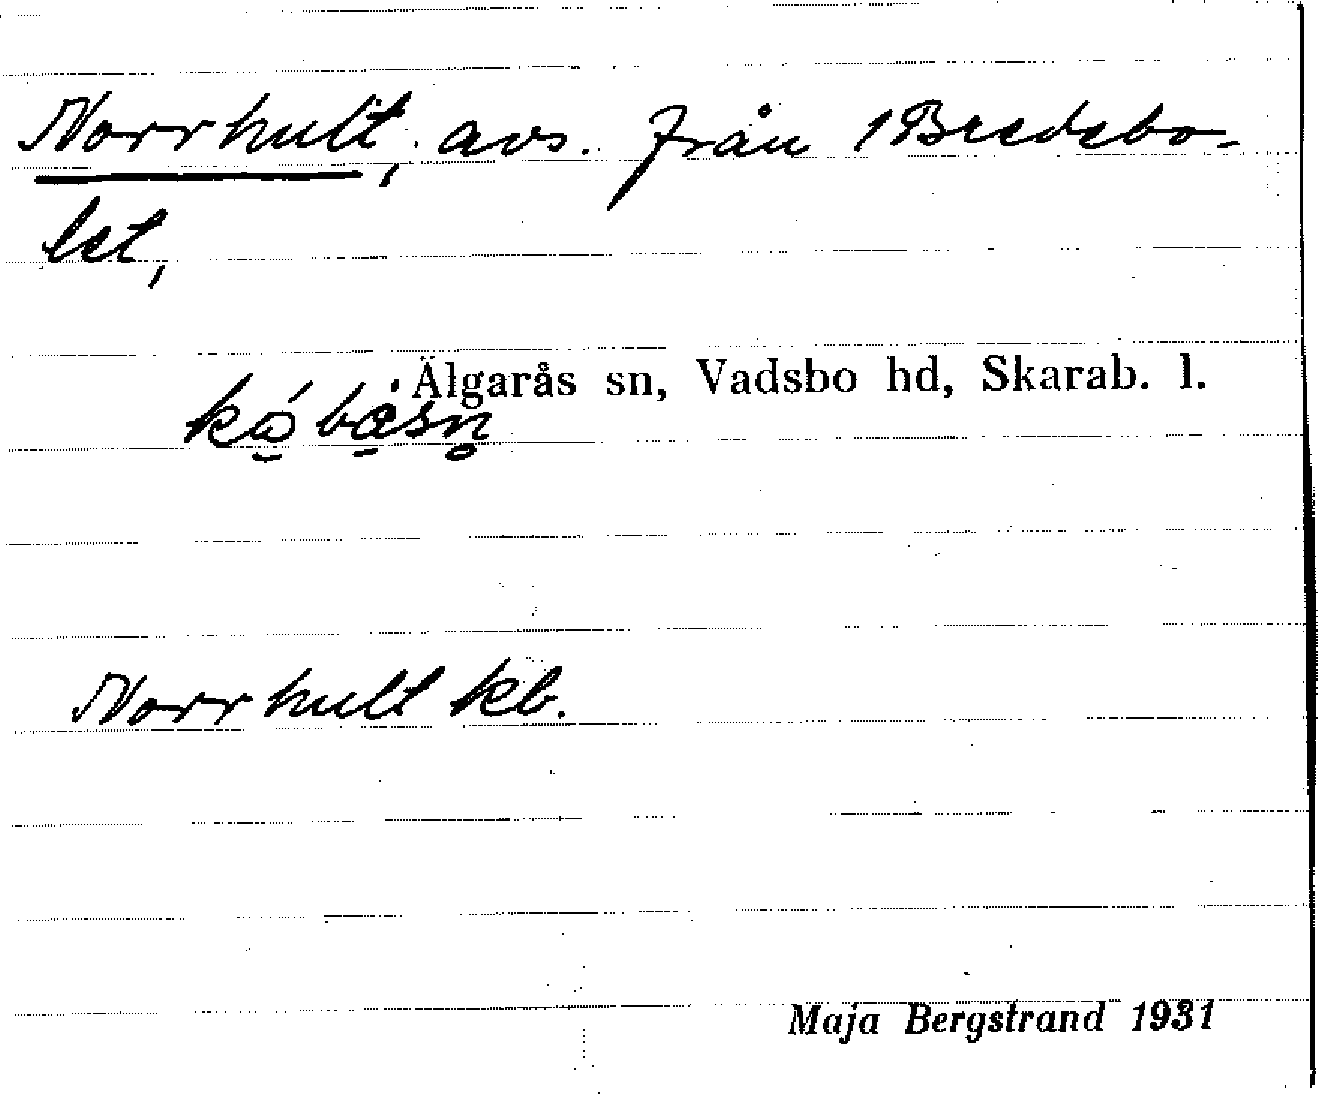 Norrhult, avs. från 1 Bredebo-
let,
Älgarås sn, Vadsbo hd, Skarab. l.
Norrhult kb.
Maja Bergstrand 1931